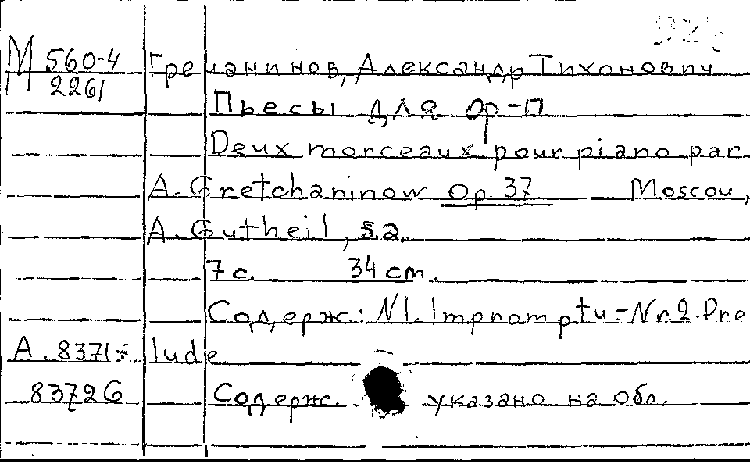 М 560-4 Гречанинов, Александр Тихонович
2261
Пьесы для ф-п
Deux morceaux pour piano par
A. Gretchaninow Op. 37 Moscou,
A. Gutheil, s.a.
7 с. 34 cm.
Содерж: N1. Impromptu - Nr. 2. Pre
A. 8371 lude
8372G Содерж. указано на обл.